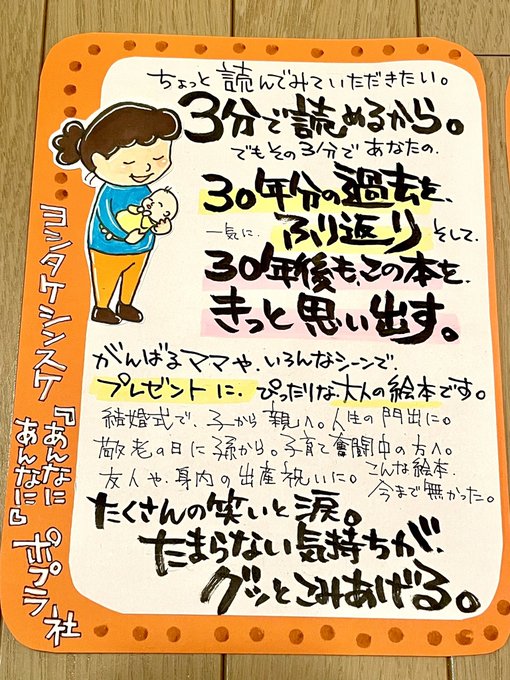 ちょっと読んでみていただきたい。
3分で読めるから。
でもその3分であなたの、
30年分の過去を、
一気に、ふり返り そして、
30年後も、この本を、
きっと思い出す。
がんばるママや、いろんなシーンで、
プレゼントに、ぴったりな大人の絵本です。
結婚式で、子から親へ。人生の門出に。
敬老の日に孫から。子育て奮闘中の方へ。
友人や、身内の出産祝いに。こんな絵本、
今まで無かった。
たくさんの笑いと涙。
たまらない気持ちが、
グッとこみあげる。
ヨシタケシンスケ『あんなに
あんなに』ポプラ社